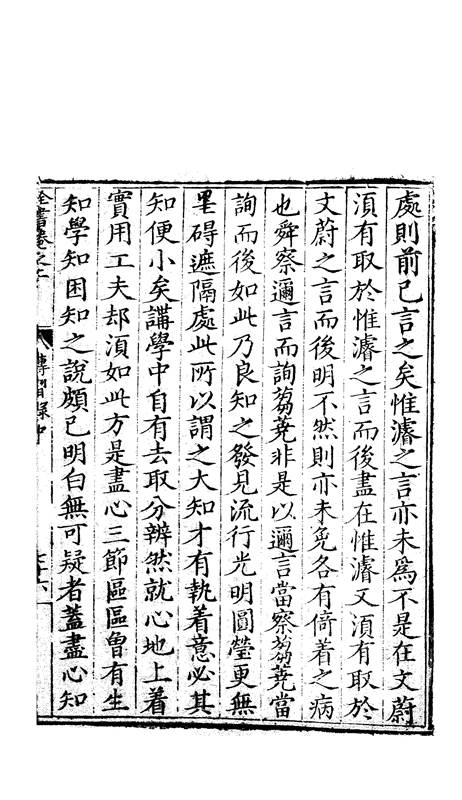 處則前已言之矣惟濬之言亦未爲不是在文蔚
湏有取於惟濬之言而後盡在惟濬又湏有取於
文蔚之言而後明不然則亦未免各有倚着之病
也舜察邇言而詢芻蕘非是以邇言當察芻蕘當
詢而後如此乃良知之發見流行光明圓瑩更無
罣碍遮隔處此所以謂之大知才有執着意必其
知便小矣講學中自有去取分辨然就心地上着
實用工夫却湏如此方是盡心三節區區曾有生
知學知困知之說頗已明白無可疑者蓋盡心知
全書卷之二
傳習録中